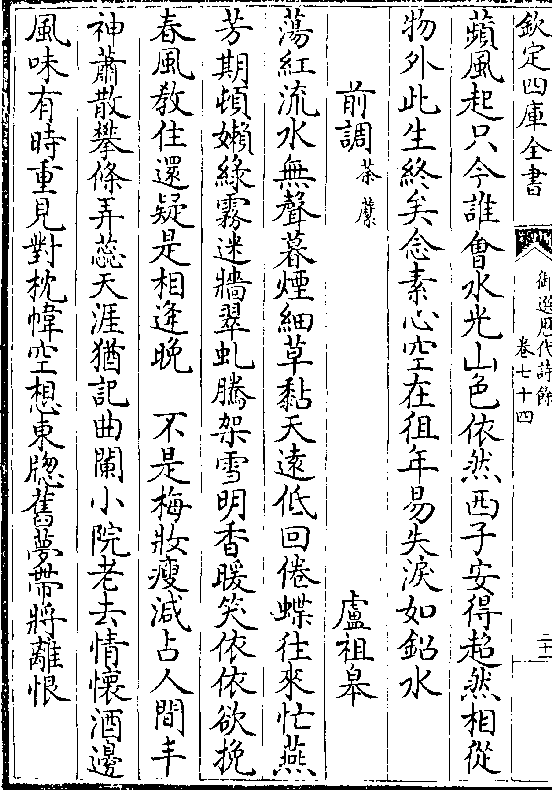 欽定四庫全書
御選歷代詩餘
卷七十四
二十一
蘋風起只今誰會水光山色依然西子安得超然相從
物外此生終矣念素心空在徂年易失淚如鉛水
前調 荼䕷
盧祖皋
蕩紅流水無聲暮煙細草黏天遠低回倦蝶往來忙燕
芳期頓嬾綠霧迷牆翠虬騰架雪明香暖笑依依欲挽
春風教住還疑是相逢晚 不是梅妝瘦減占人間丰
神蕭散攀條弄蕊天涯猶記曲闌小院老去情懷酒邊
風味有時重見對枕幃空想東牕舊夢帶將離恨